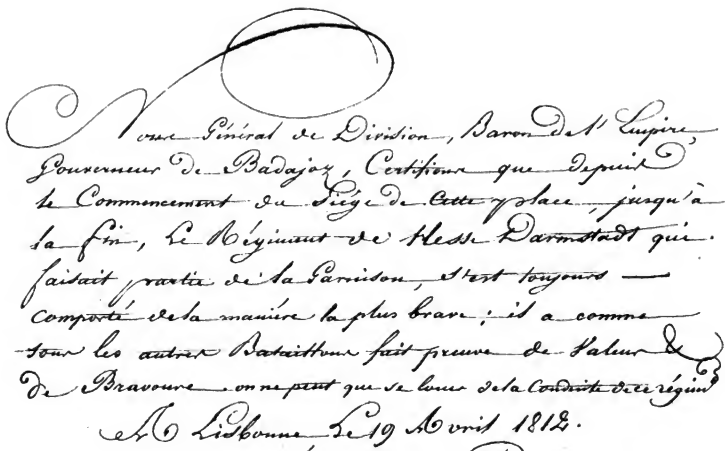 Nous Général de Division, Baron de l'Empire,
Gouverneur de Badajoz, Certifions que depuis
le Commencement du Siège de Cette place, jusqu'à
la fin, Le Régiment de Hesse Darmstadt qui
faisait partie de la Garnison, s'est toujours —
comporté de la manière la plus brave ; il a comme
tous les autres Bataillons fait preuve de Valeur &
de Bravoure on ne peut que se louer de la Conduite de ce régimt
A Lisbonne, Le 19 Avril 1812.